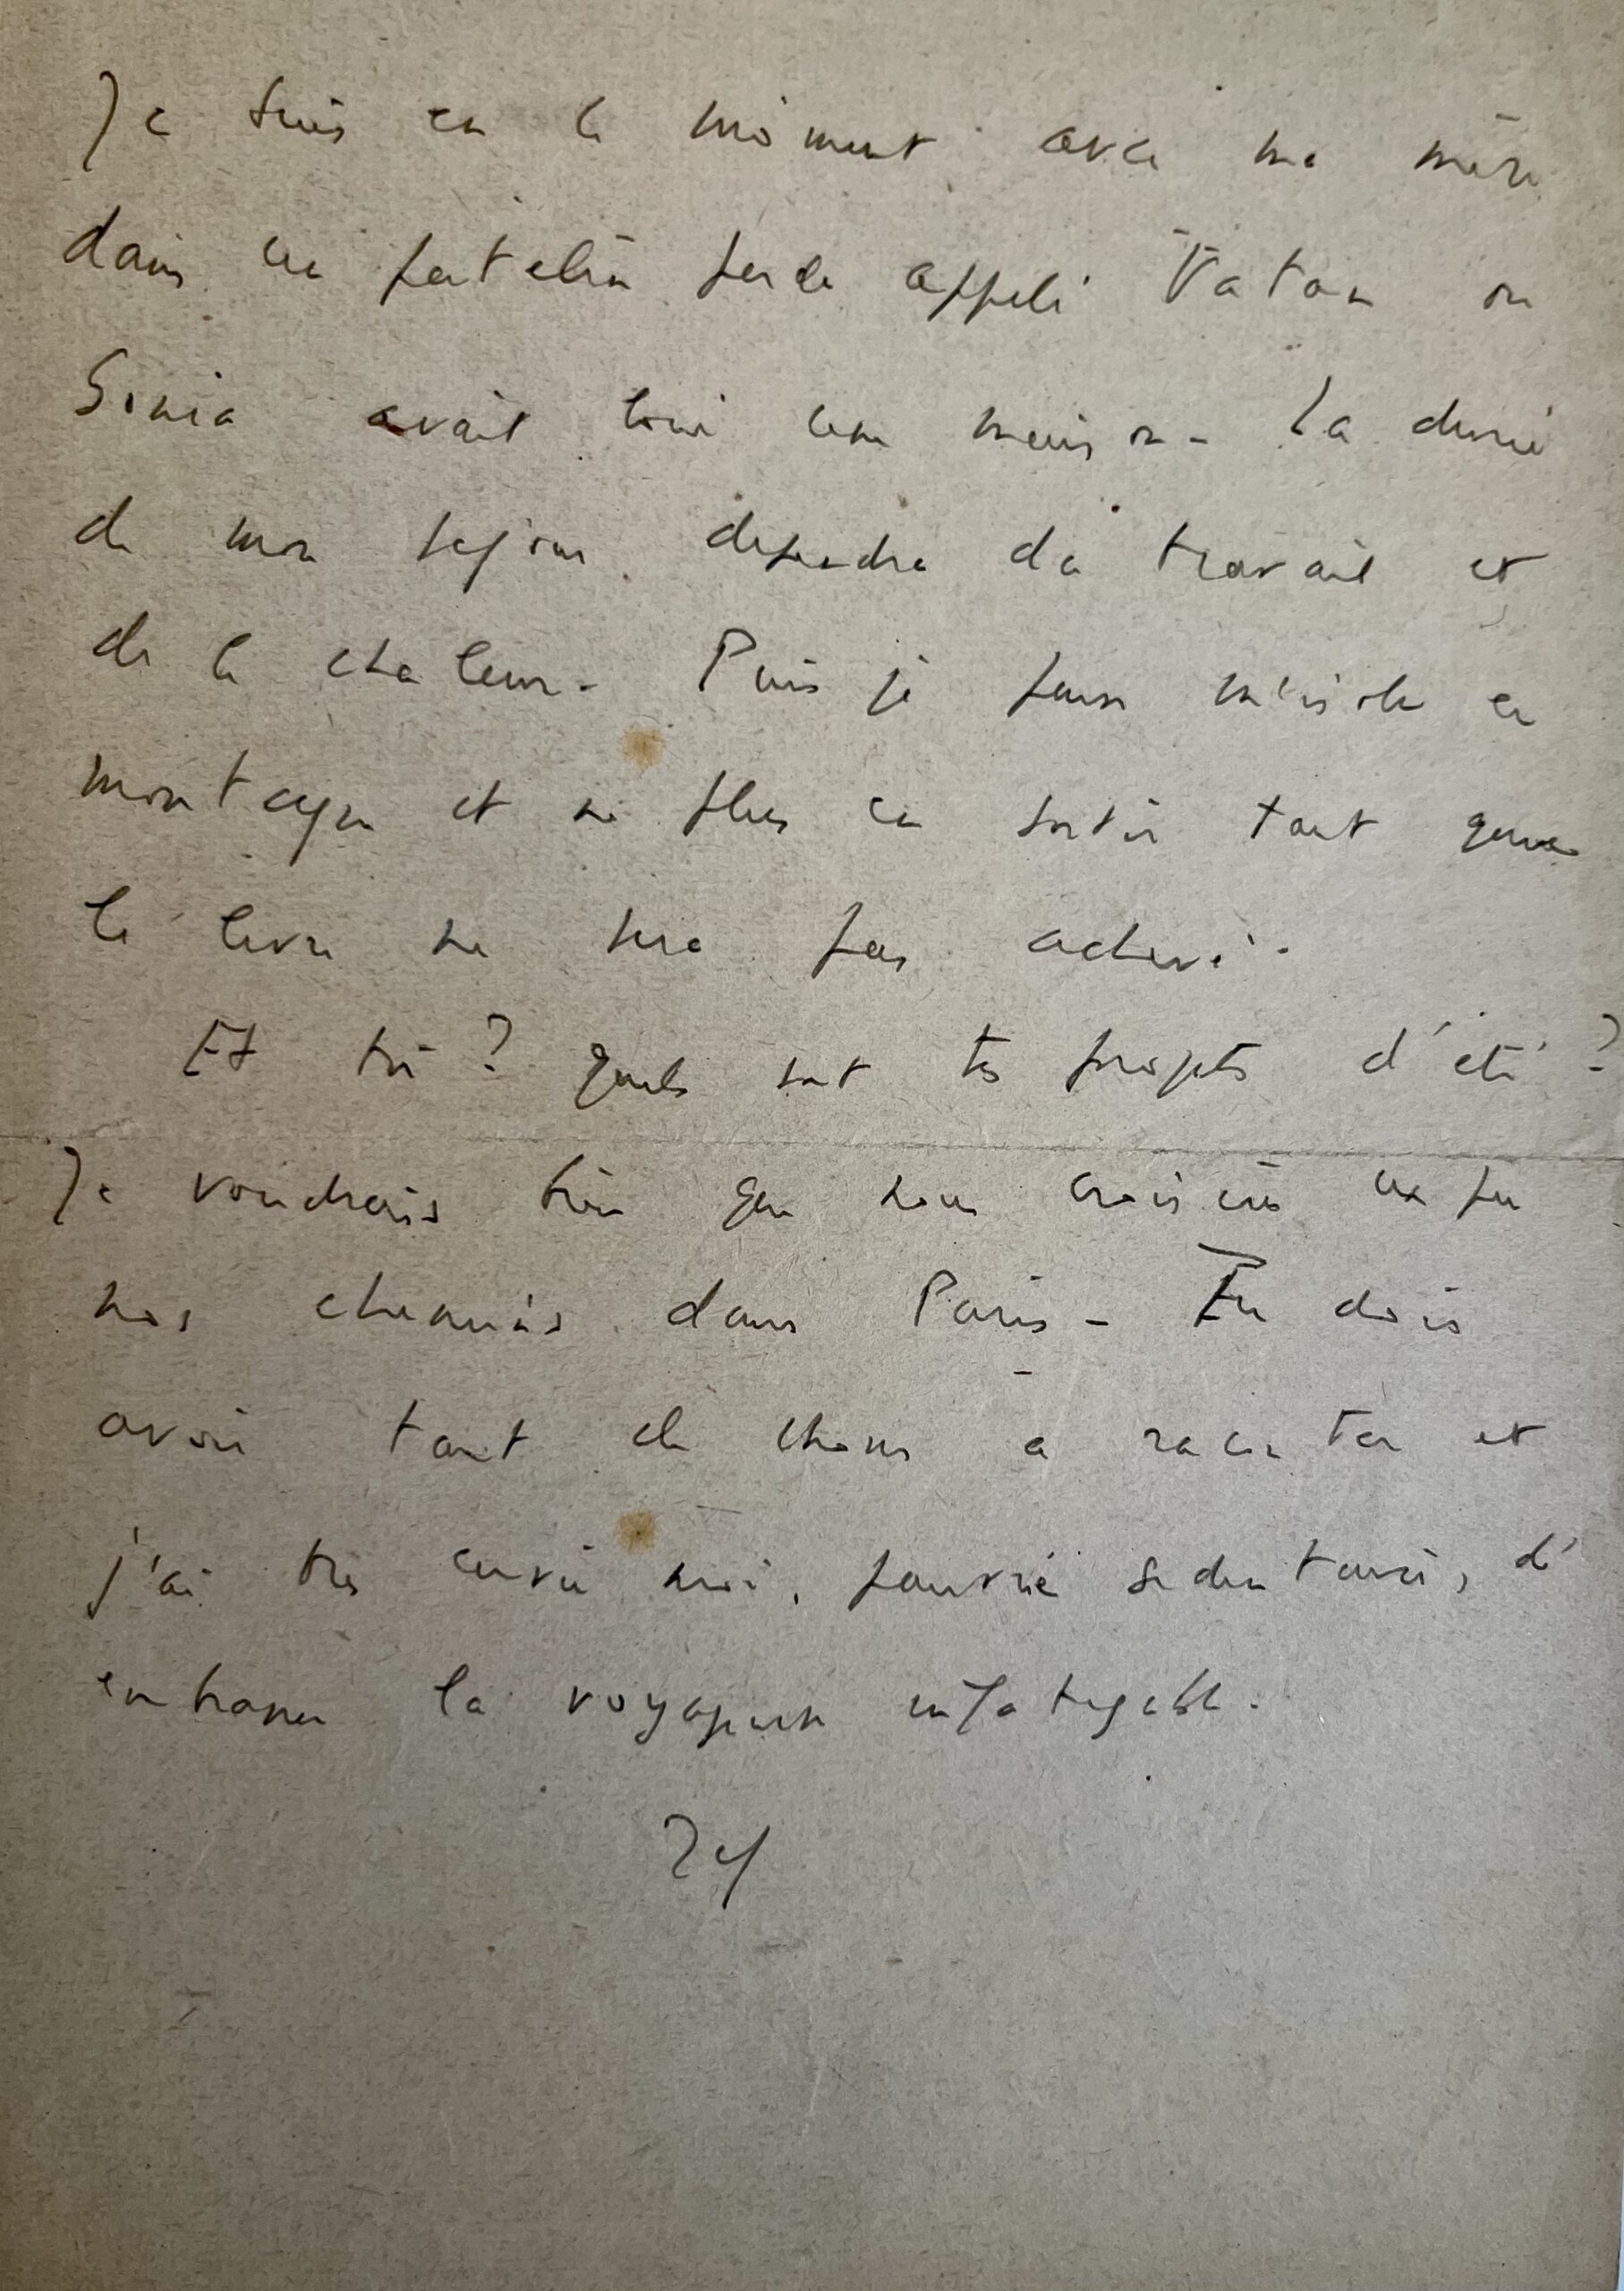 Je suis en ce moment avec ma mère
dans un patelin perdu appelé Vatan où
Sonia avait loué une maison - La durée
de mon séjour dépendra du travail et
de la chaleur - Puis je pense m'isoler en
montagne et ne plus en sortir tant que
le livre ne sera pas achevé.
Et toi ? Quels sont tes projets d'été ?
Je voudrais bien que nous croisions un peu
nos chemins dans Paris - Tu dois
avoir tant de choses à raconter et
j'ai très envie moi, pauvre sédentaire, d'
embrasser la voyageuse infatigable.